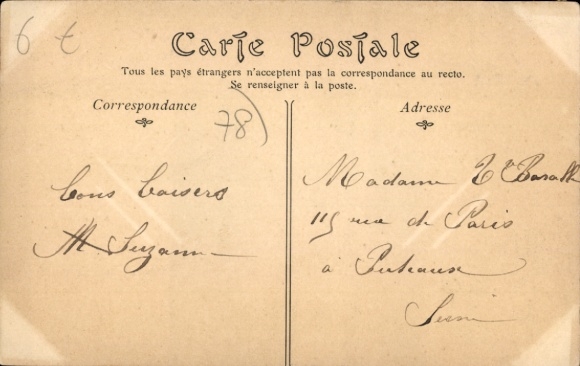 6 €
Carte Postale
Tous les pays étrangers n'acceptent pas la correspondance au recto.
Se renseigner à la poste.
Correspondance
78
Bons Baisers
Suzanne
Adresse
Madame
115 rue de Paris
à Puteaux
Seine